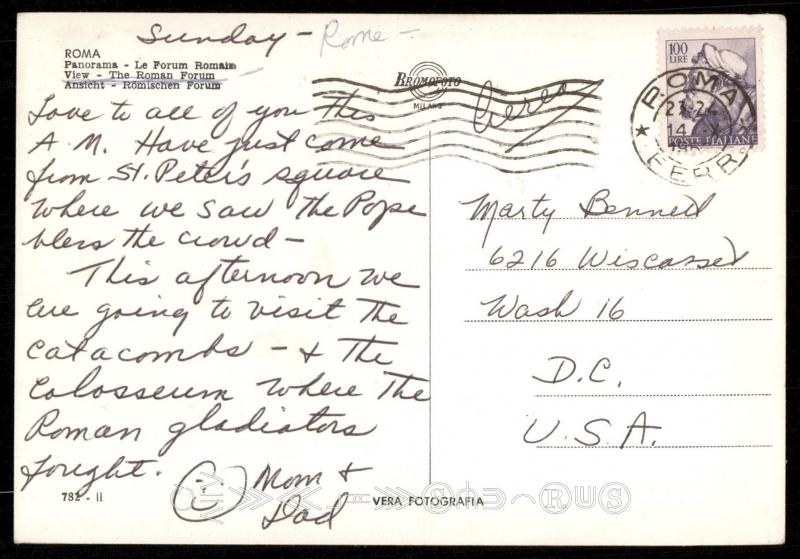 Sunday - Rome -
ROMA
Panorama - Le Forum Romain
View - The Roman Forum
Ansicht - Römischen Forum
BROMOFOTO
MILANO
Aereo
100
LIRE
POSTE ITALIANE
ROMA
FERR
Love to all of you this
A.M. Have just come
from St. Peter's square
where we saw the Pope
bless the crowd -
This afternoon we
are going to visit the
Catacombs - & the
Colosseum where the
Roman gladiators
fought.
Mom &
Dad
Marty Bennett
6216 Wiscasset
Wash 16
D.C.
U.S.A.
782 - II
VERA FOTOGRAFIA